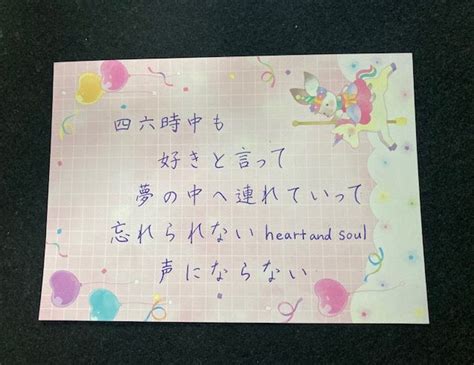 四六時中も
好きと言って
夢の中へ連れていって
忘れられない heart and soul
声にならない